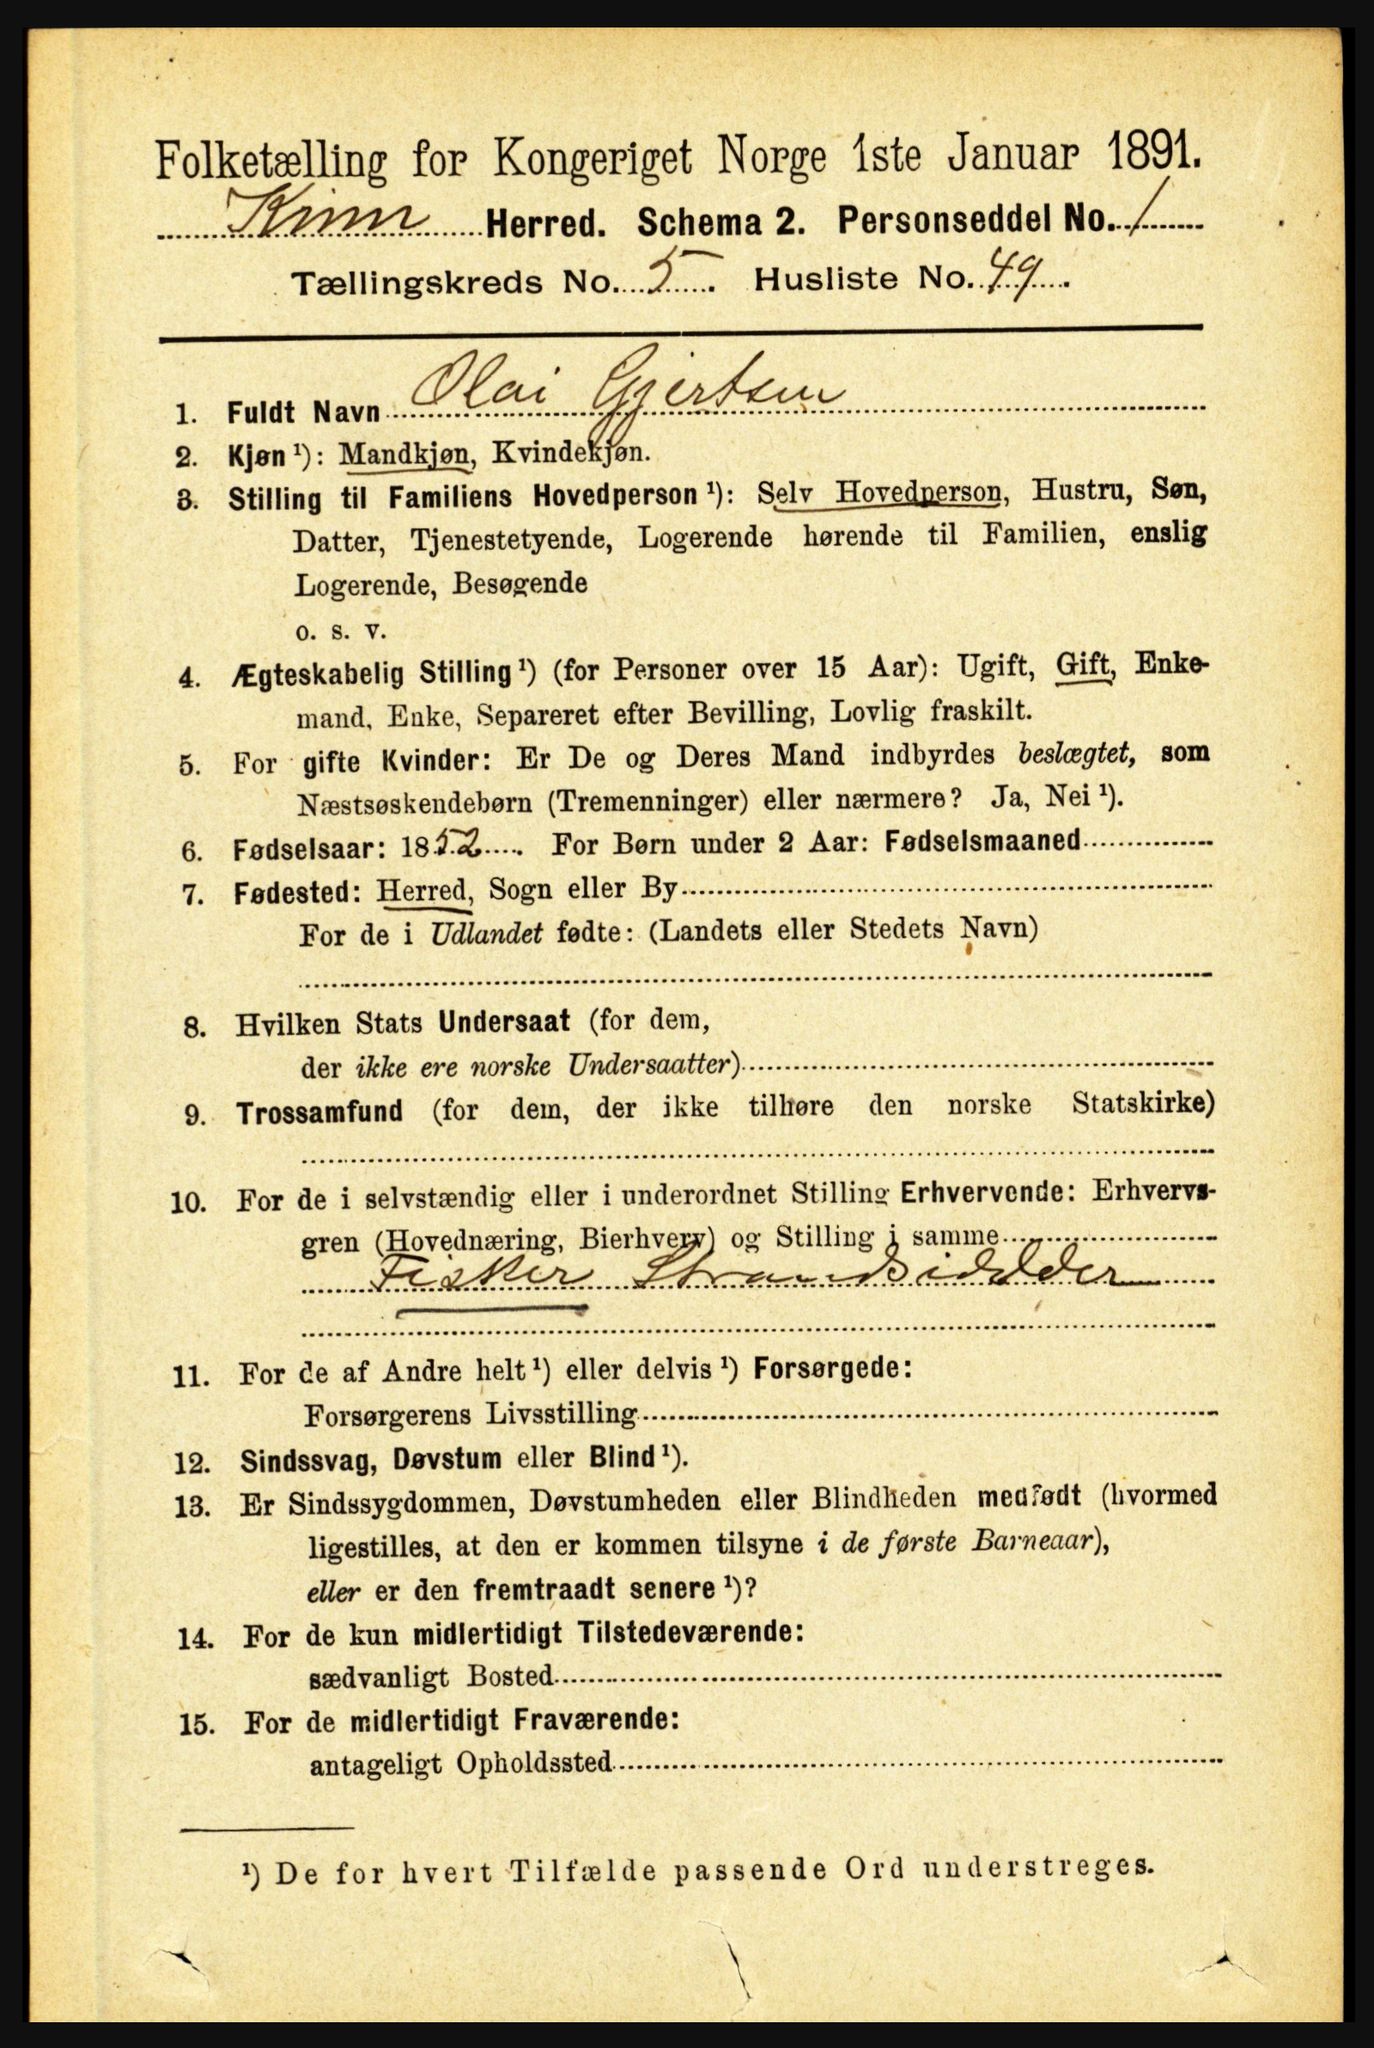 Folketælling for Kongeriget Norge 1ste Januar 1891.
Kinn Herred. Schema 2. Personseddel No. 1
Tællingskreds No. 5. Husliste No. 49.
1. Fuldt Navn Olai Gjertsen
2. Kjøn ¹): Mandkjøn, Kvindekjøn.
3. Stilling til Familiens Hovedperson ¹): Selv Hovedperson, Hustru, Søn,
Datter, Tjenestetyende, Logerende hørende til Familien, enslig
Logerende, Besøgende
o. s. v.
4. Ægteskabelig Stilling ¹) (for Personer over 15 Aar): Ugift, Gift, Enke-
mand, Enke, Separeret efter Bevilling, Lovlig fraskilt.
5. For gifte Kvinder: Er De og Deres Mand indbyrdes beslægtet, som
Næstsøskendebørn (Tremenninger) eller nærmere? Ja, Nei ¹).
6. Fødselsaar: 1852. For Børn under 2 Aar: Fødselsmaaned
7. Fødested: Herred, Sogn eller By
For de i Udlandet fødte: (Landets eller Stedets Navn)
8. Hvilken Stats Undersaat (for dem,
der ikke ere norske Undersaatter)
9. Trossamfund (for dem, der ikke tilhøre den norske Statskirke)
10. For de i selvstændig eller i underordnet Stilling Erhvervende: Erhvervs-
gren (Hovednæring, Bierhverv) og Stilling i samme
Fisker Strandsidder
11. For de af Andre helt ¹) eller delvis ¹) Forsørgede:
Forsørgerens Livsstilling
12. Sindssvag, Døvstum eller Blind ¹).
13. Er Sindssygdommen, Døvstumheden eller Blindheden medfødt (hvormed
ligestilles, at den er kommen tilsyne i de første Barneaar),
eller er den fremtraadt senere ¹)?
14. For de kun midlertidigt Tilstedeværende:
sædvanligt Bosted
15. For de midlertidigt Fraværende:
antageligt Opholdssted
¹) De for hvert Tilfælde passende Ord understreges.